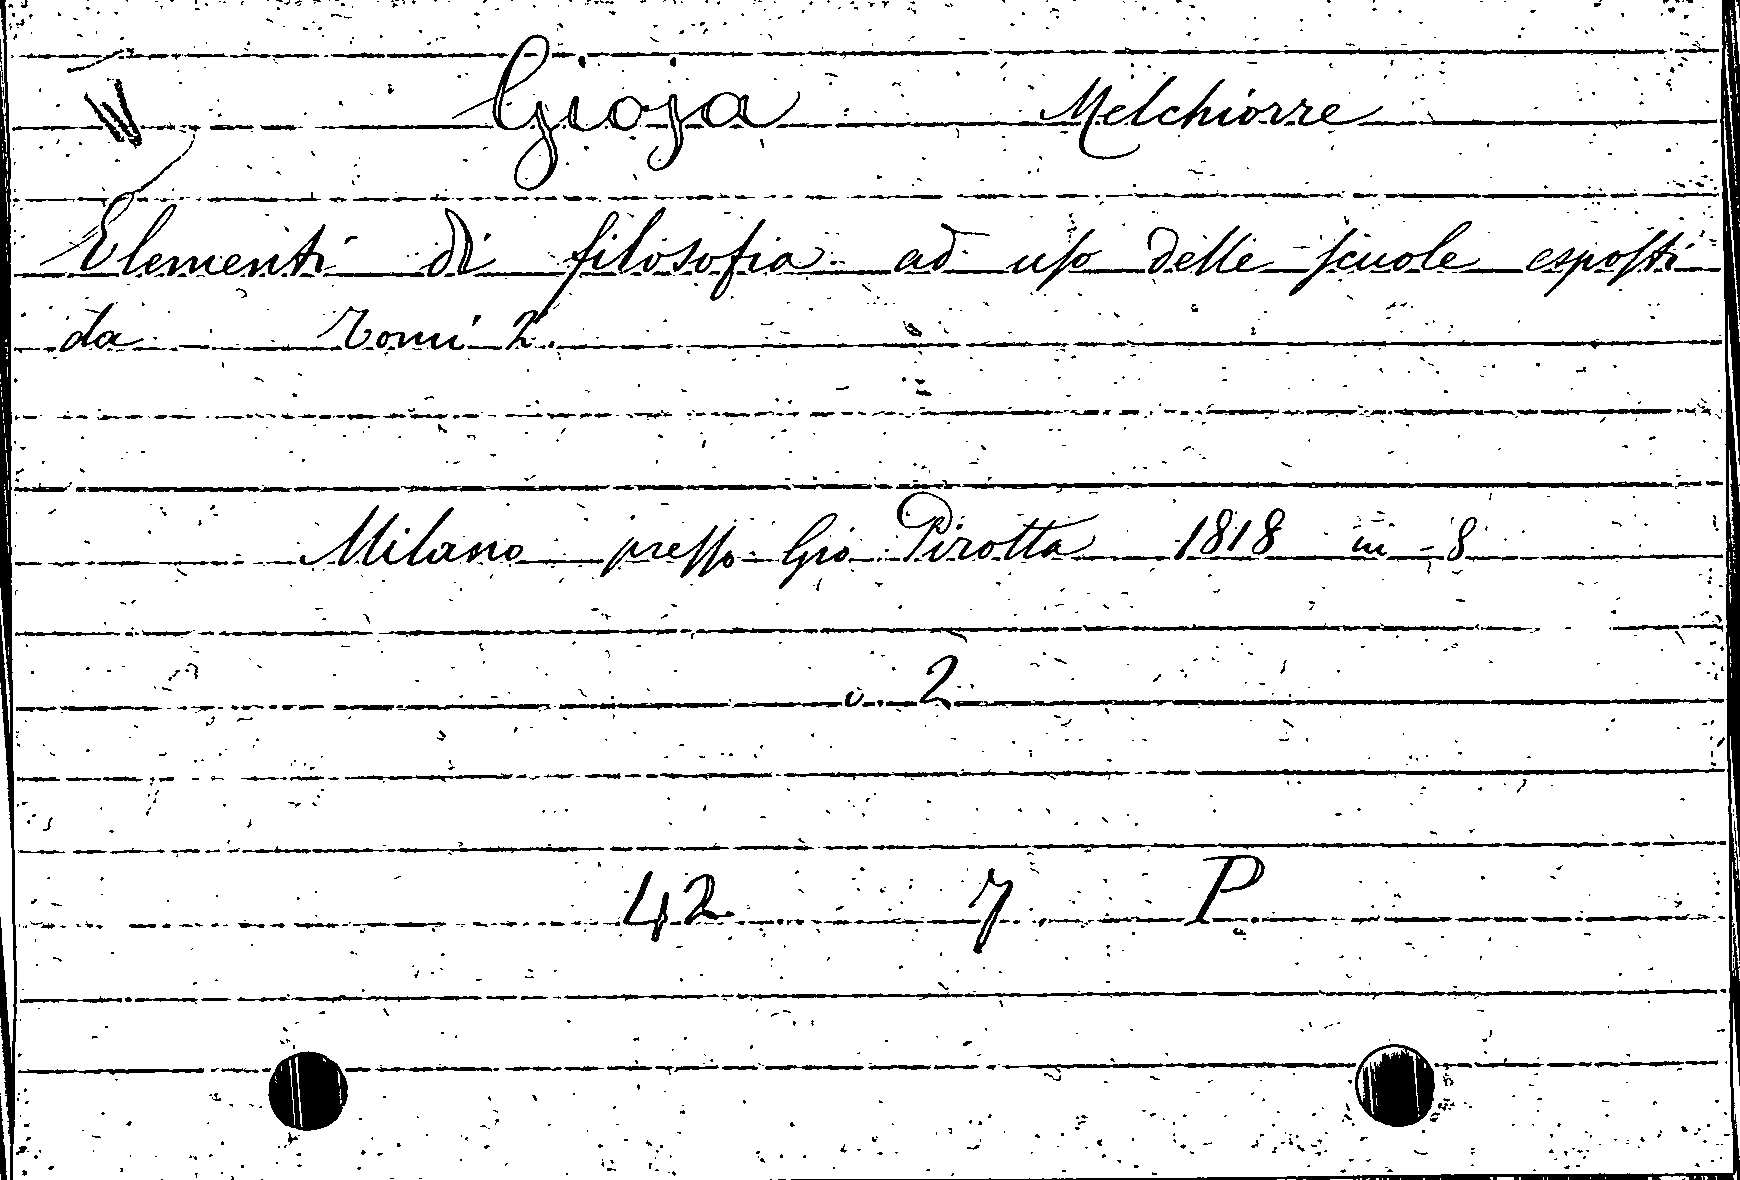 Gioja Melchiorre
Elementi di filosofia ad uso delle scuole esposti
da Tomi 2.
Milano presso Gio Pirotta 1818 in 8
v. 2
42 7 P